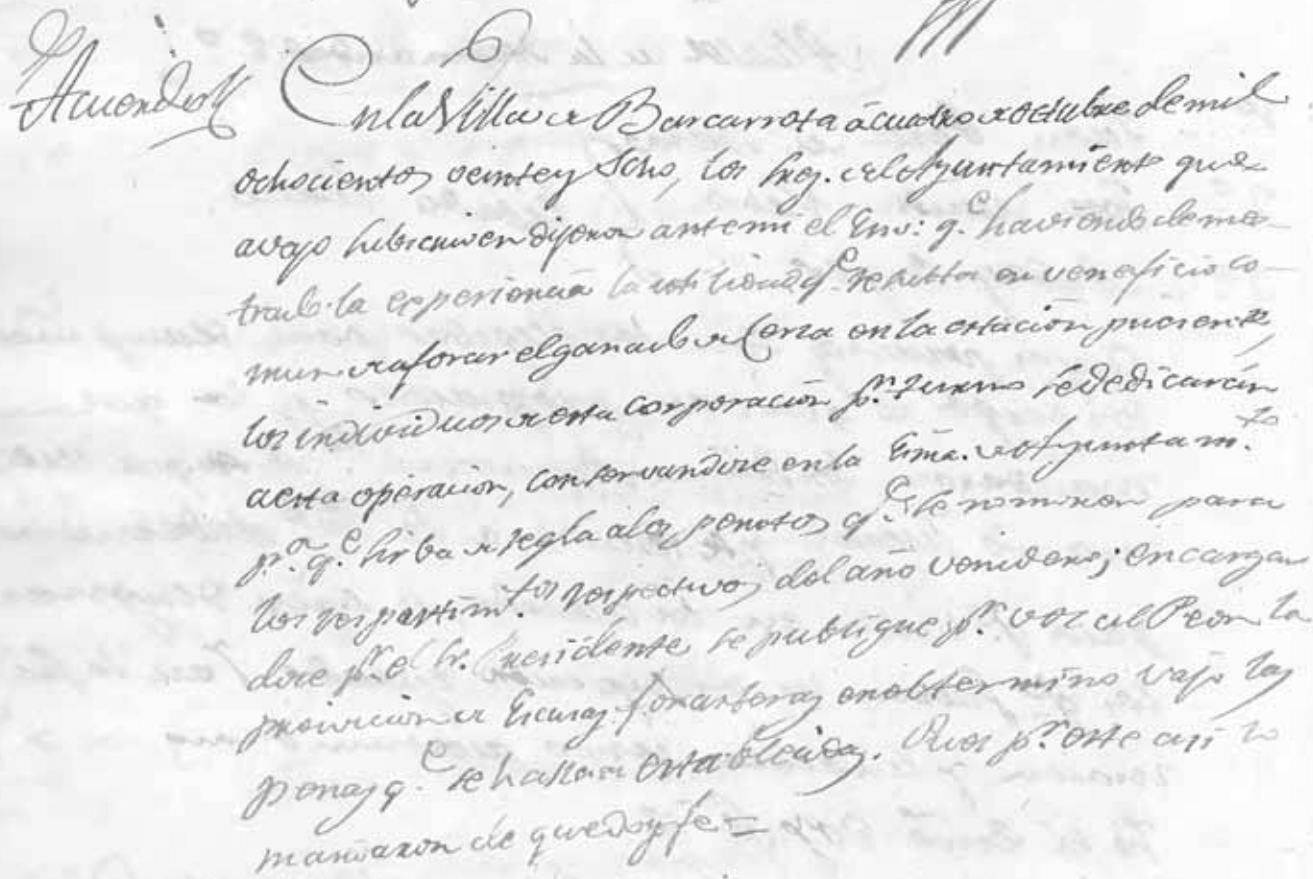 Acuerdo
En la Villa de Barcarrota á cuatro de octubre de mil
ochocientos veinte y ocho, los Sres. del Ayuntamiento que
avajo subscriven dijeron ante mi el Sno: q.e haviendo demos-
trado la experiencia la utilidad q.e resulta en veneficio co-
mun de aforar el ganado de Cerda en la estación presente,
los individuos de esta corporación p.r turno se dedicarán
a esta operación, conservandose en la Sma. de Ayuntam.to
p.a q.e sirba de regla a los peritos q.e se nombren para
los repartim.tos respectivos del año venidero; encargan
dose p.r el Sr. Presidente se publique p.r voz del Peon la
proivicion de forasteras en este termino vajo las
penas q.e se hallan establecidas. Pues p.r este asi lo
mandaron de que doy fe =